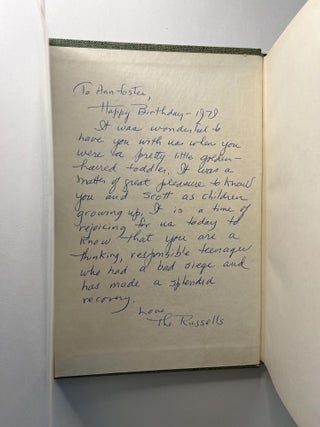 To Ann-Foster,
Happy Birthday - 1979
It was wonderful to
have you with us when you
were a pretty little golden-
haired toddler. It was a
matter of great pleasure to know
you and Scott as children
growing up. It is a time of
rejoicing for us today to
know that you are a
thinking, responsible teenager
who had a bad siege and
has made a splendid
recovery.
Love,
The Russells